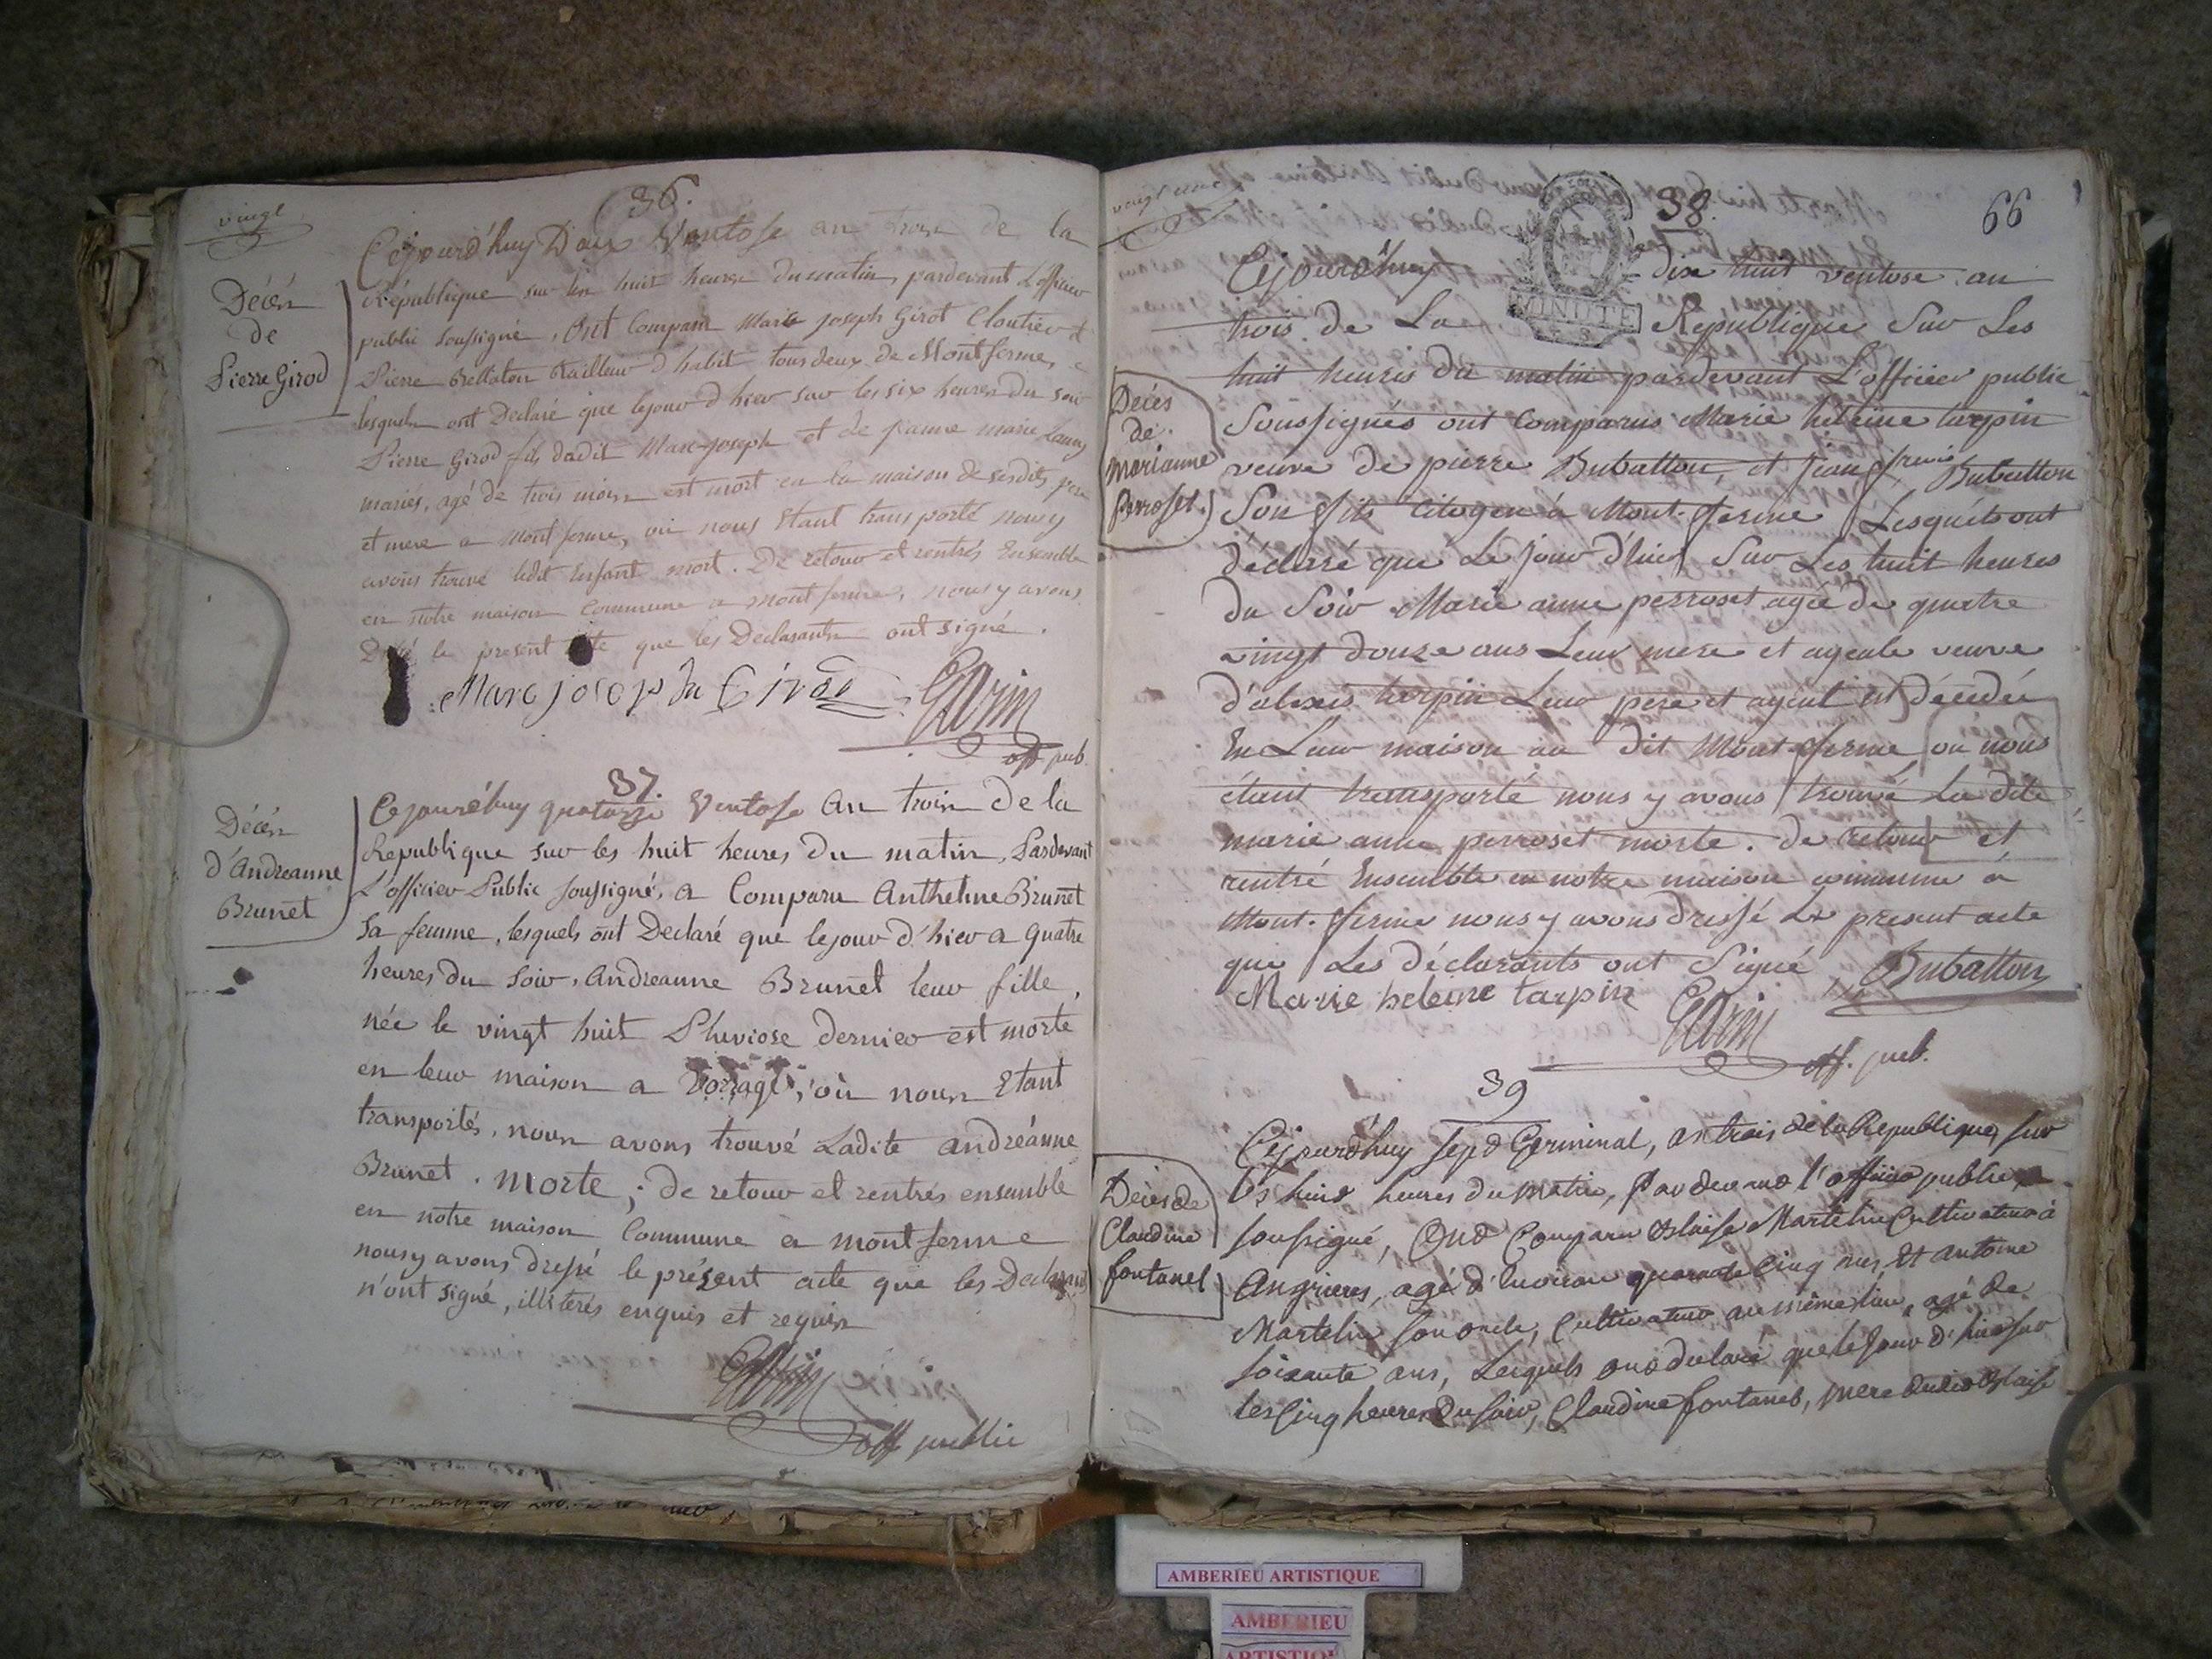 vingt
36.
Décès
de
Pierre Girod
Cejourd'huy Doux Ventose an trois de la
République sur les huit heures du matin, pardevant L'officier
public soussigné, Ont Comparu Marc joseph Girot Cloutier et
Pierre trailleur d habit tous deux de Montferme,
lesquels ont Déclaré que lejour d hier sur les six heures du soir
Pierre Girod fils dudit Marc-joseph et de jeanne marie
mariés, agé de trois mois est mort en la maison de sesdits pere
et mere a Montferme, où nous Etant transporté nousy
avons trouvé ledit Enfant mort. De retour et rentrés Ensemble
en notre maison Commune a montferme, nousy avons
le present que les Declarants ont signé.
Marc joseph Girod
off pub.
37.
Décès
d'Andreanne
Brunet
Cejourd'huy quatorze Ventose an trois de la
Republique sur les huit heures du matin, Pardevant
L'officier Public soussigné, a Comparu Anthelme Brunet
sa femme, lesquels ont Declaré que lejour d'hier a quatre
heures du soir, Andreanne Brunet leur fille,
née le vingt huit Pluviose dernier est morte
en leur maison a , où nous Etant
transportés, nous avons trouvé Ladite andréanne
Brunet. morte; de retour et rentrés ensemble
en notre maison Commune a montferme
nousy avons dressé le présent acte que les Declarants
n'ont signé, illiterés enquis et requis
off public
vingt une
38.
66
MINUTE
Décès
de
marianne
perroset.
Cejourd'huy dix huit ventose an
trois de La République Sur Les
huit heures du matin pardevant L'officier public
Soussignés ont comparus Marie héleine tarpin
veuve de pierre Dubatton, et jean Dubatton
Son fils Citoyen à Mont-ferme Lesquels ont
déclaré que Le jour d'hier Sur Les huit heures
du Soir Marie anne perroset agée de quatre
vingt douze ans Leur mere et ayeule veuve
d'alexis tarpin Leur pere et ayeul est décedée
En Leur maison au dit Mont-ferme ou nous
étant transporté nous y avons trouvé La dite
marie anne perroset morte. de retour et
rentré Ensemble en notre maison commune à
Mont-ferme nous y avons dressé Le present acte
que Les déclarants ont Signé
Dubatton
Marie heleine tarpin
off. pub.
39
Décès de
Claudine
fontanel
Cejourd'huy sept Germinal, an trois de la Republique, sur
les huit heures du matin, Pardevant l'officier public
soussigné, Ont Comparu Blaise Martelin Cultivateur à
Angrieres, agé d'Environ quarante Cinq ans, Et antoine
Martelin son oncle, Cultivateur au même lieu, agé de
soixante ans, Lesquels ont déclaré que le jour d'hier sur
les Cinq heures du soir, Claudine fontanel, mere dudit Blaise
AMBERIEU ARTISTIQUE
AMBERIEU